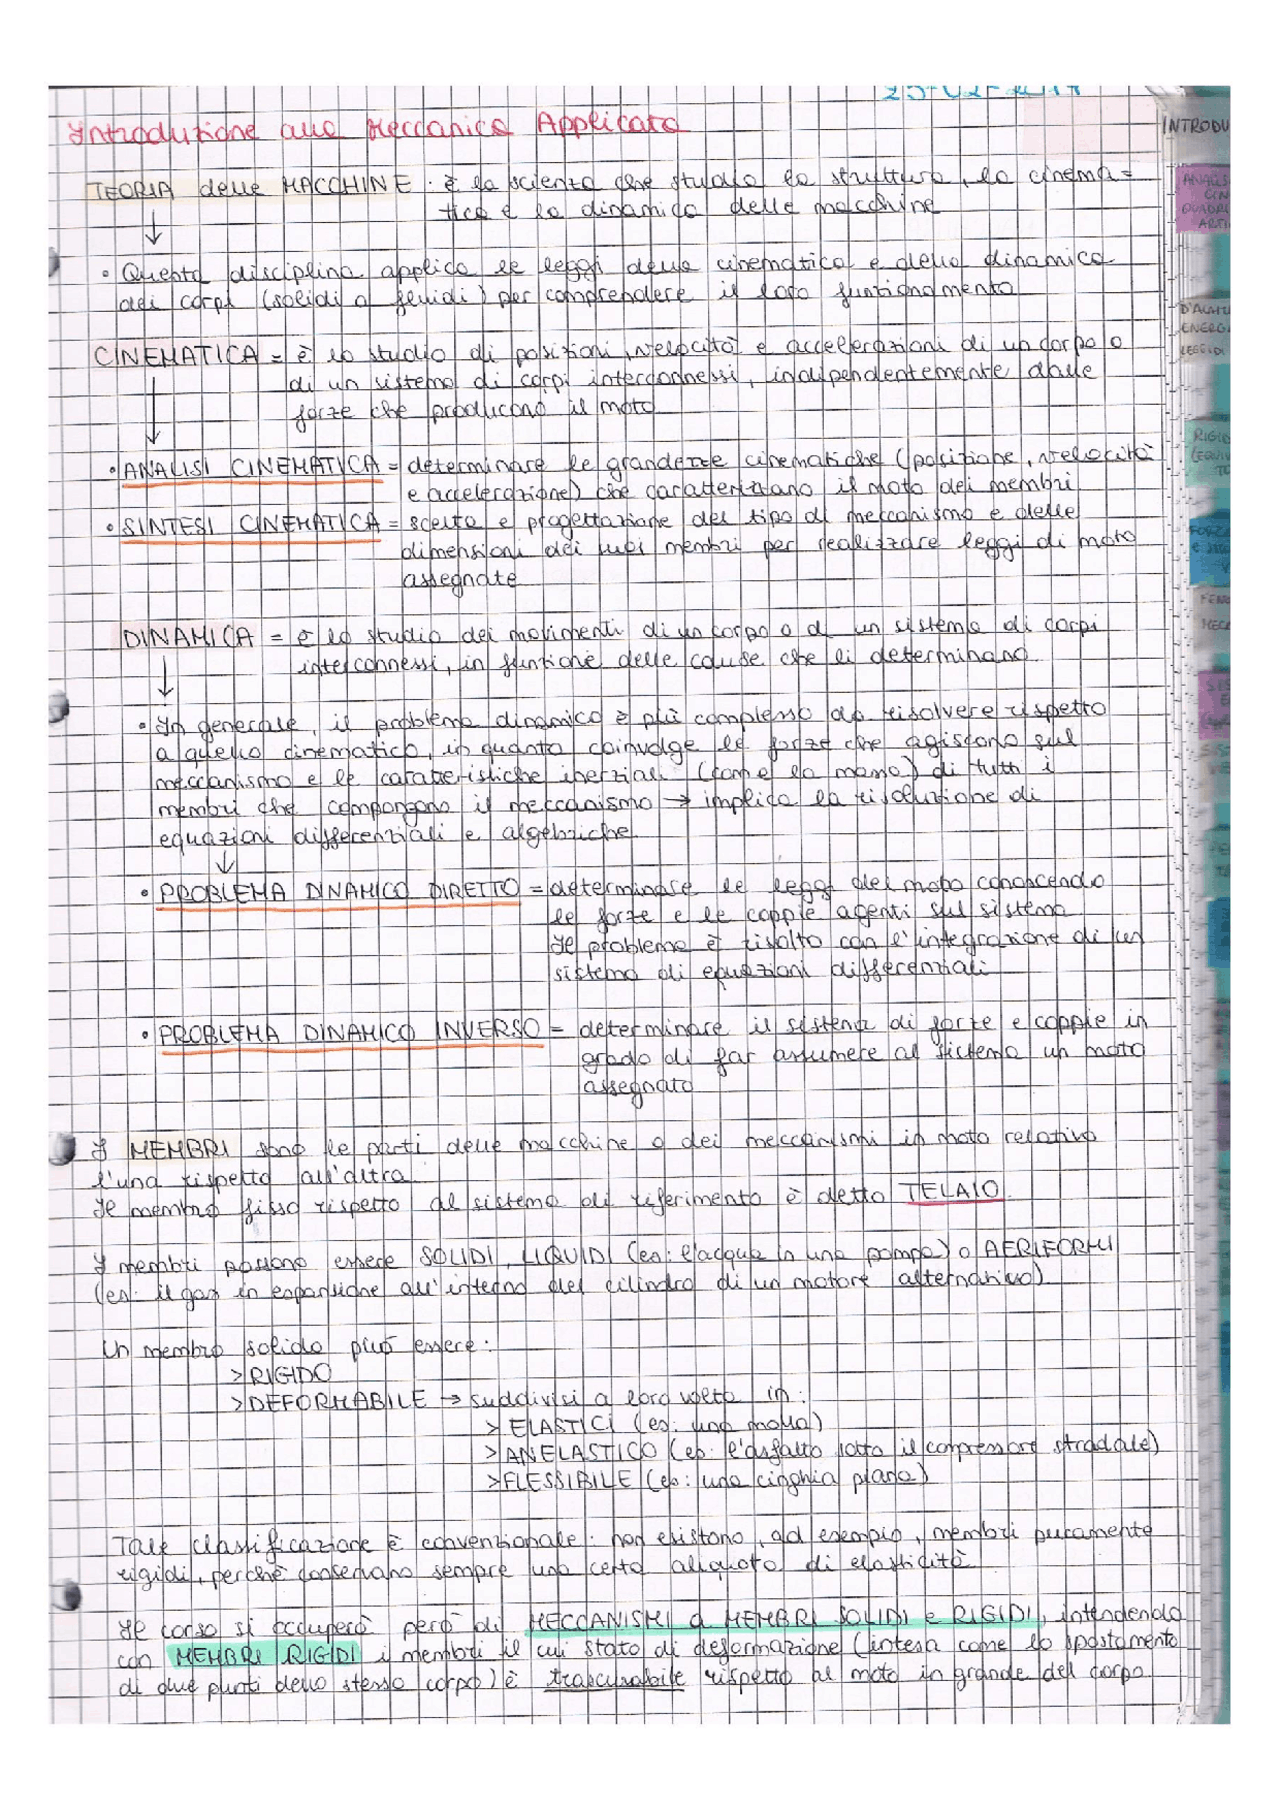 Introduzione alla Meccanica Applicata
INTRODU
TEORIA delle MACCHINE : è la scienza che studia la struttura, la cinema=
tica e la dinamica delle macchine
• Questa disciplina applica le leggi della cinematica e della dinamica
dei corpi (solidi o fluidi) per comprendere il loro funzionamento
CINEMATICA = è lo studio di posizioni, velocità e accellerazioni di un corpo o
di un sistema di corpi interconnessi, indipendentemente dalle
forze che producono il moto
• ANALISI CINEMATICA = determinare le grandezze cinematiche (posizione, velocità
e accelerazione) che caratterizzano il moto dei membri
• SINTESI CINEMATICA = scelta e progettazione del tipo di meccanismo e delle
dimensioni dei suoi membri per realizzare leggi di moto
assegnate
DINAMICA = è lo studio dei movimenti di un corpo o di un sistema di corpi
interconnessi, in funzione delle cause che li determinano
• In generale, il problema dinamico è più complesso da risolvere rispetto
a quello cinematico, in quanto coinvolge le forze che agiscono sul
meccanismo e le caratteristiche inerziali (come la massa) di tutti i
membri che compongono il meccanismo → implica la risoluzione di
equazioni differenziali e algebriche
• PROBLEMA DINAMICO DIRETTO = determinare le leggi del moto conoscendo
le forze e le coppie agenti sul sistema
Il problema è risolto con l'integrazione di un
sistema di equazioni differenziali
• PROBLEMA DINAMICO INVERSO = determinare il sistema di forze e coppie in
grado di far assumere al sistema un moto
assegnato
I MEMBRI sono le parti delle macchine o dei meccanismi in moto relativo
l'una rispetto all'altra
Il membro fisso rispetto al sistema di riferimento è detto TELAIO
I membri possono essere SOLIDI, LIQUIDI (es: l'acqua in una pompa) o AERIFORMI
(es: il gas in espansione all'interno del cilindro di un motore alternativo)
Un membro solido può essere:
> RIGIDO
> DEFORMABILE → suddivisi a loro volta in:
> ELASTICI (es: una molla)
> ANELASTICO (es: l'asfalto sotto il compressore stradale)
> FLESSIBILE (es: una cinghia piana)
Tale classificazione è convenzionale: non esistono, ad esempio, membri puramente
rigidi, perchè conservano sempre una certa aliquota di elasticità
Il corso si occuperà però di MECCANISMI a MEMBRI SOLIDI e RIGIDI, intendendo
con MEMBRI RIGIDI i membri il cui stato di deformazione (intesa come lo spostamento
di due punti dello stesso corpo) è trascurabile rispetto al moto in grande del corpo